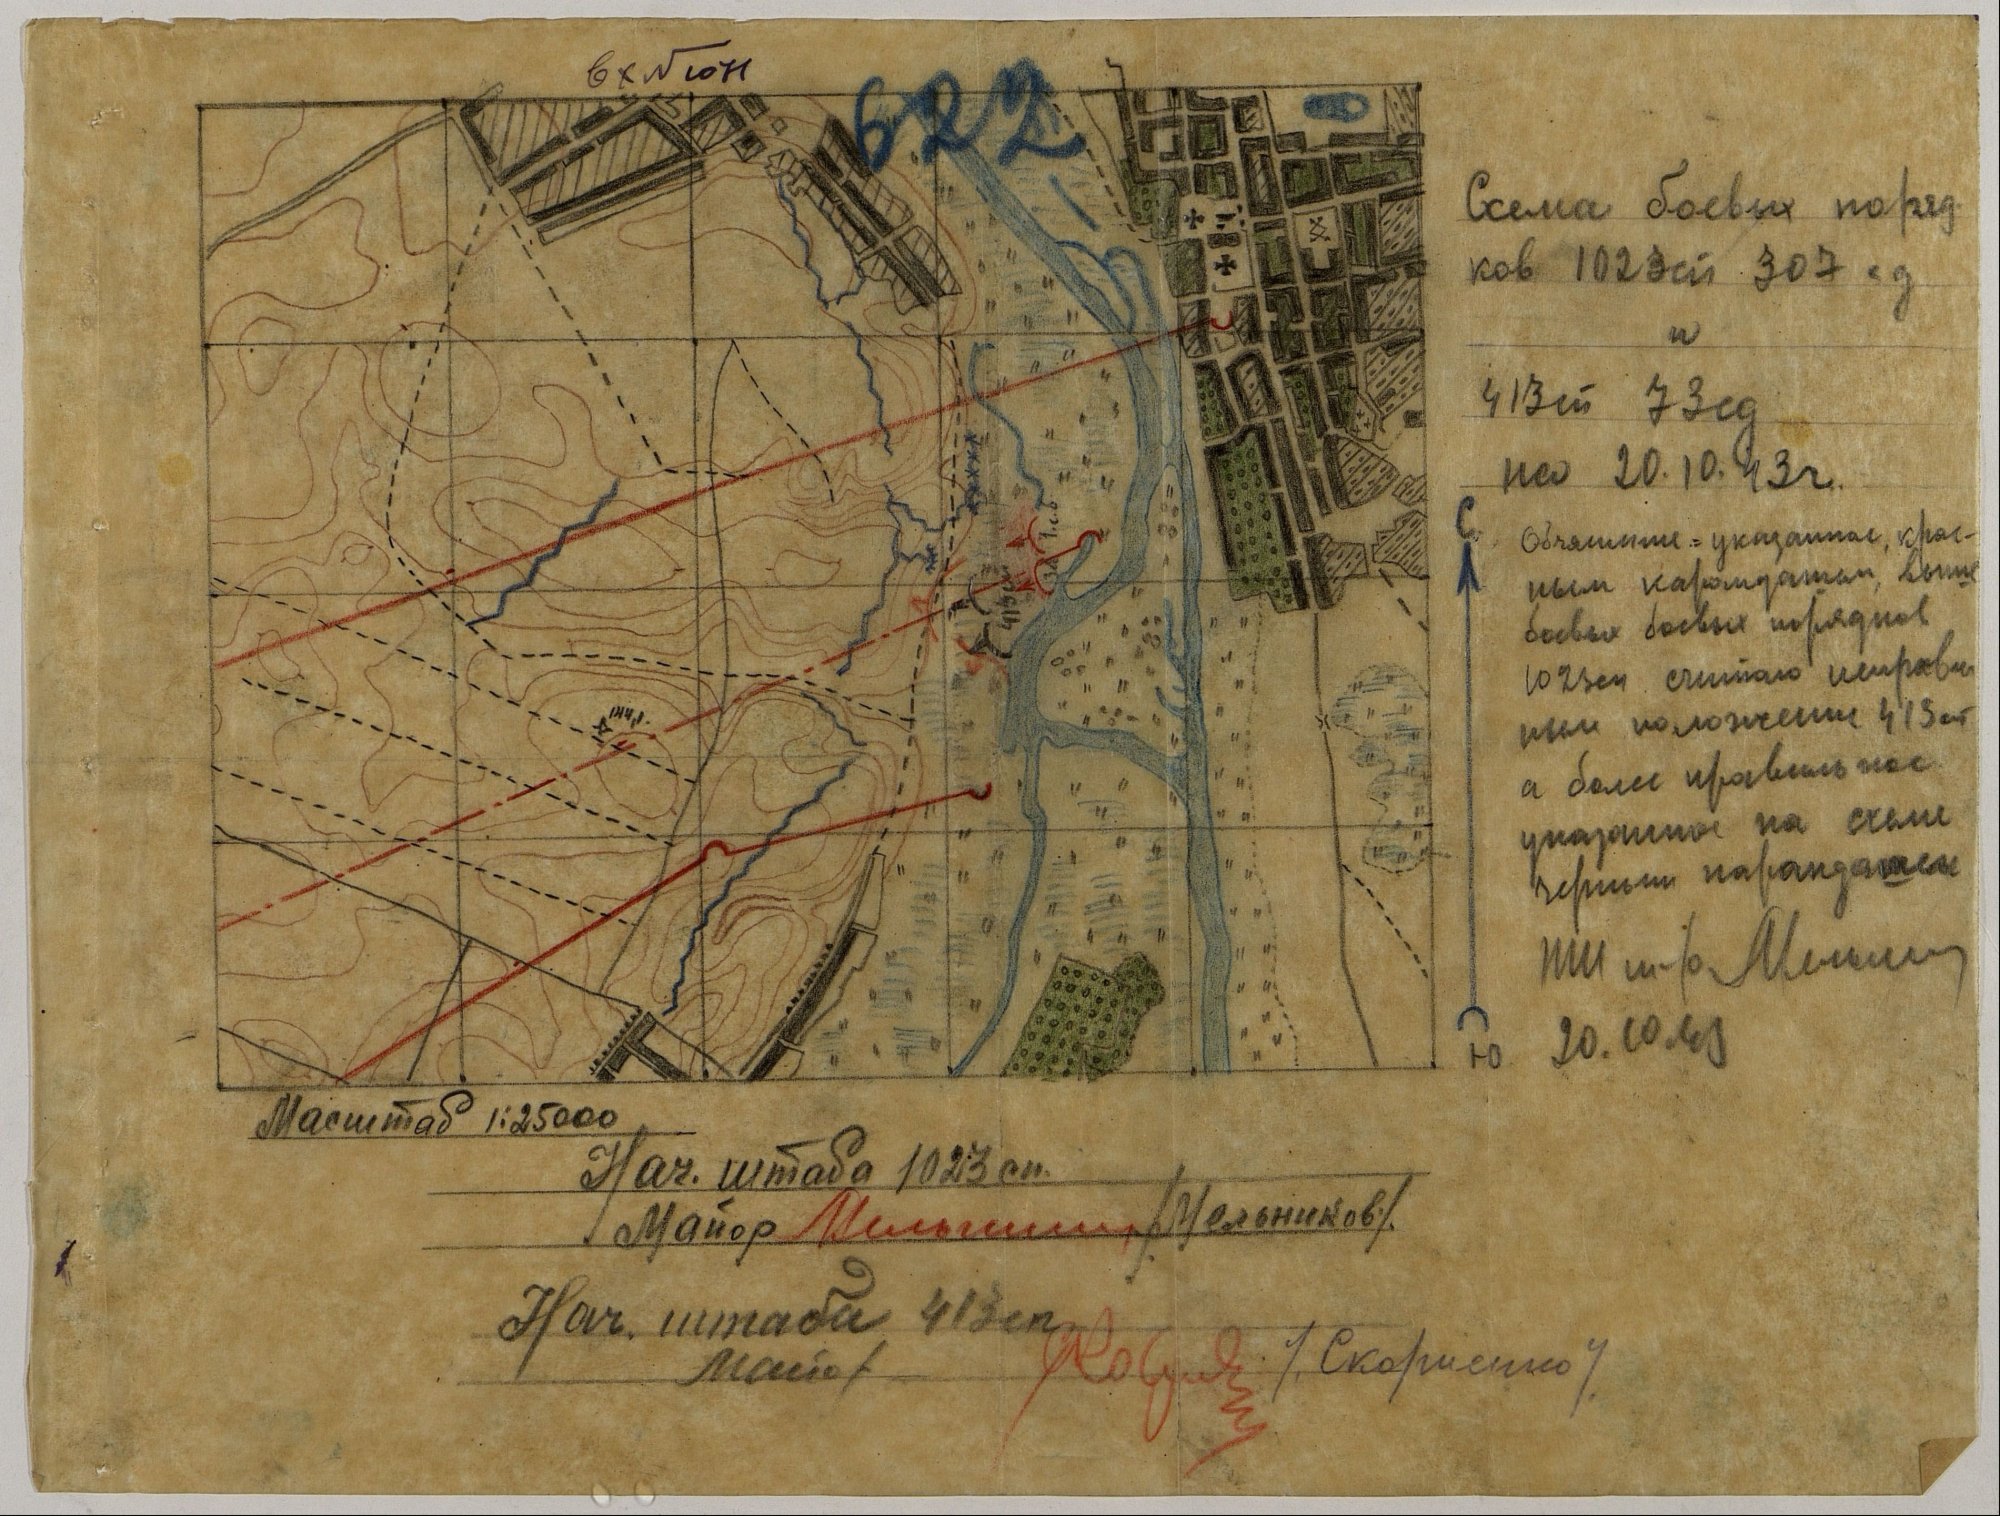 вх №
622
Схема боевых поряд
ков 1023сп 307 сд
и
413сп 73сд
на 20.10.43г.
С
указанное, крас-
ным карандашом, выше
боевых боевых порядков
1023сп считаю неправи
ным положение 413сп
а более правильное
указанное на схеме
черным карандашом
20.10.43
Ю
1сб
413сп
Масштаб 1:25000
Нач. штаба 1023 сп.
Майор /Мельников/.
Нач. штаба 413сп
Майор